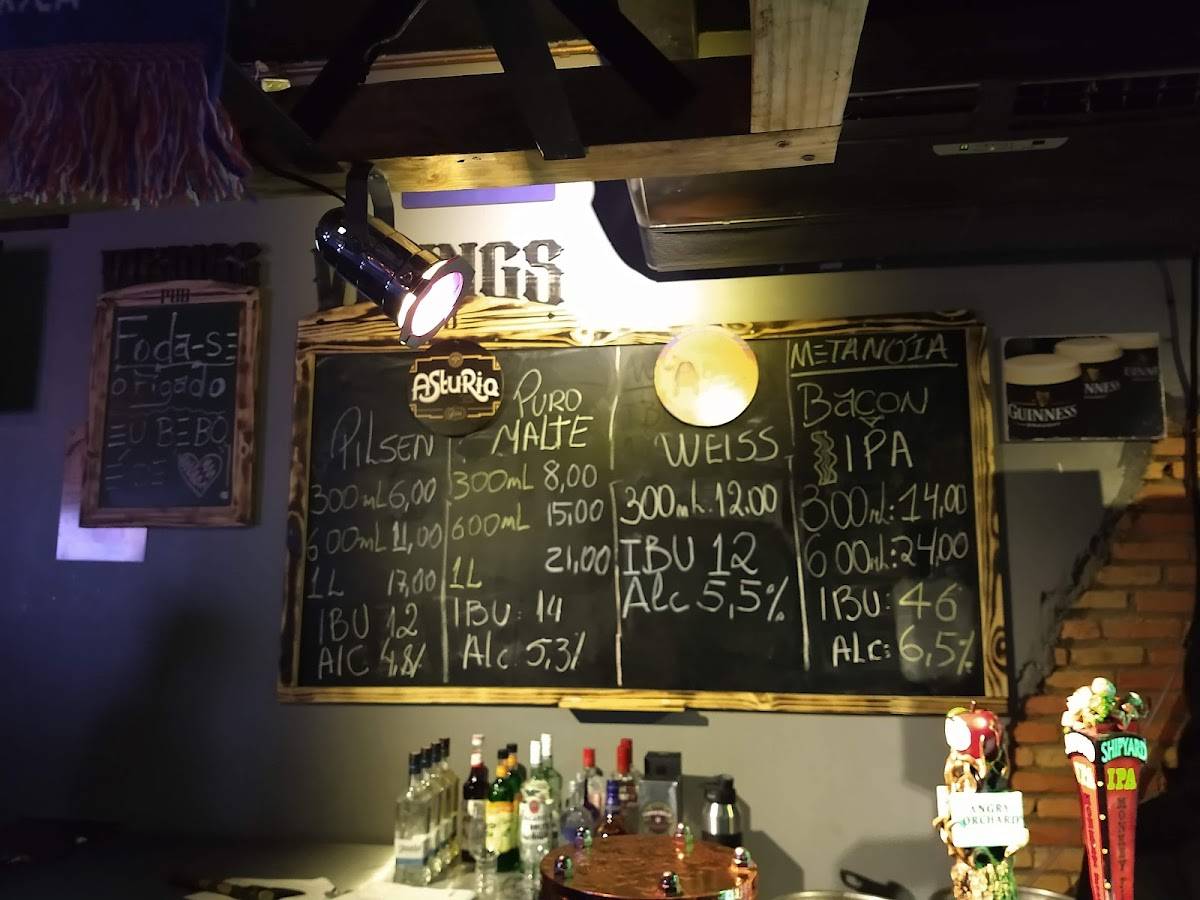 PUB
Foda-se
origado
EU BEBO
NGS
Asturia
PILSEN
300mL 6,00
600mL 11,00
1L 17,00
IBU 12
AlC 4,8%
PURO
MALTE
300mL 8,00
600mL 15,00
1L 21,00
IBU: 14
Alc 5,3%
WEISS
300mL. 12,00
IBU 12
Alc 5,5%
METANÓIA
BACON
IPA
300mL: 14,00
600mL: 24,00
IBU: 46
ALC: 6,5%
GUINNESS
ANGRY
ORCHARD
SHIPYARD
IPA